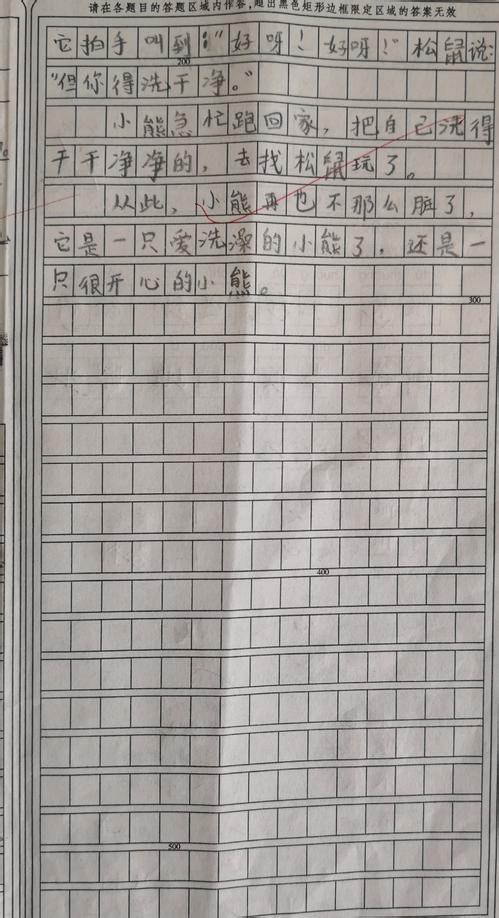 请在各题目的答题区域内作答，超出黑色矩形边框限定区域的答案无效
它拍手叫到：“好呀！好呀！”松鼠说：
200
“但你得洗干净。”
小熊急忙跑回家，把自己洗得
干干净净的，去找松鼠玩了。
从此，小熊再也不那么脏了，
它是一只爱洗澡的小熊了，还是一
只很开心的小熊。
300
400
500